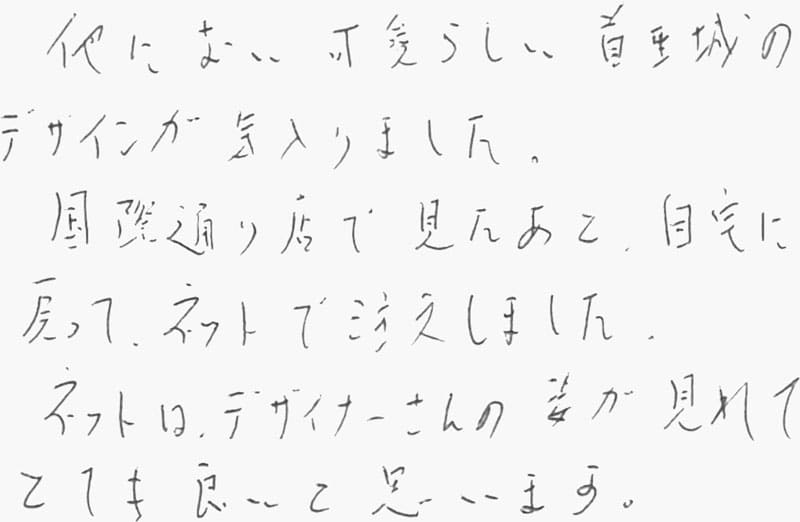 他にない可愛らしい首里城の
デザインが気入りました。
国際通り店で見たあと、自宅に
戻って、ネットで注文しました。
ネットは、デザイナーさんの姿が見れて
とても良いと思います。